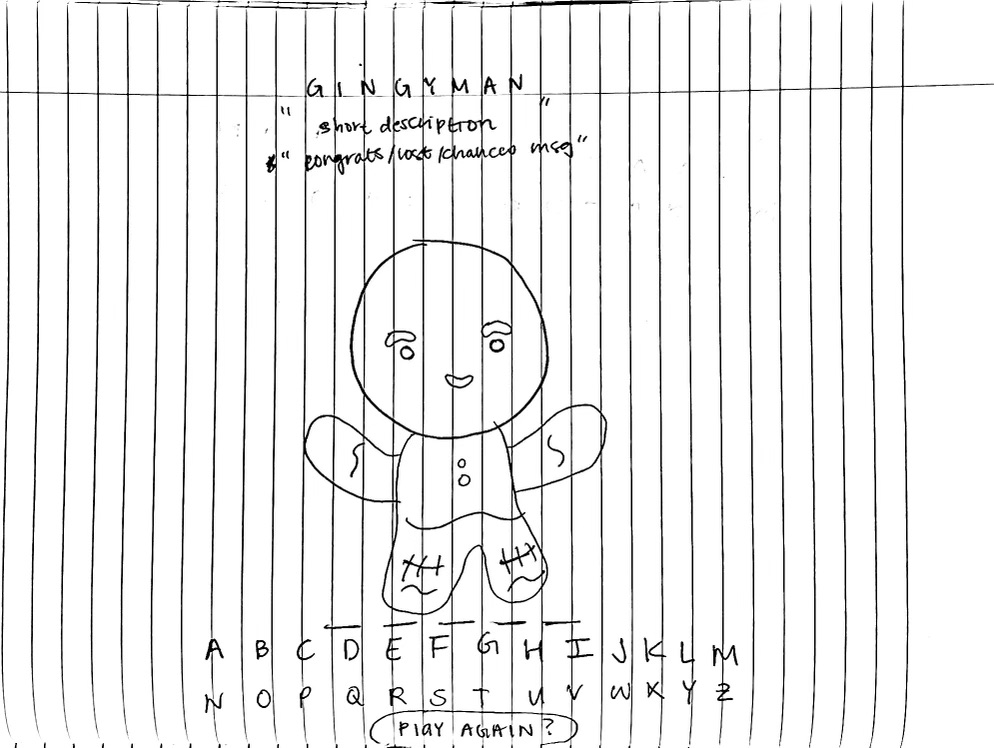 GINGYMAN
" short description "
" congrats/lost/chances msg"
A B C D E F G H I J K L M
N O P Q R S T U V W X Y Z
PlAY AGAIN?